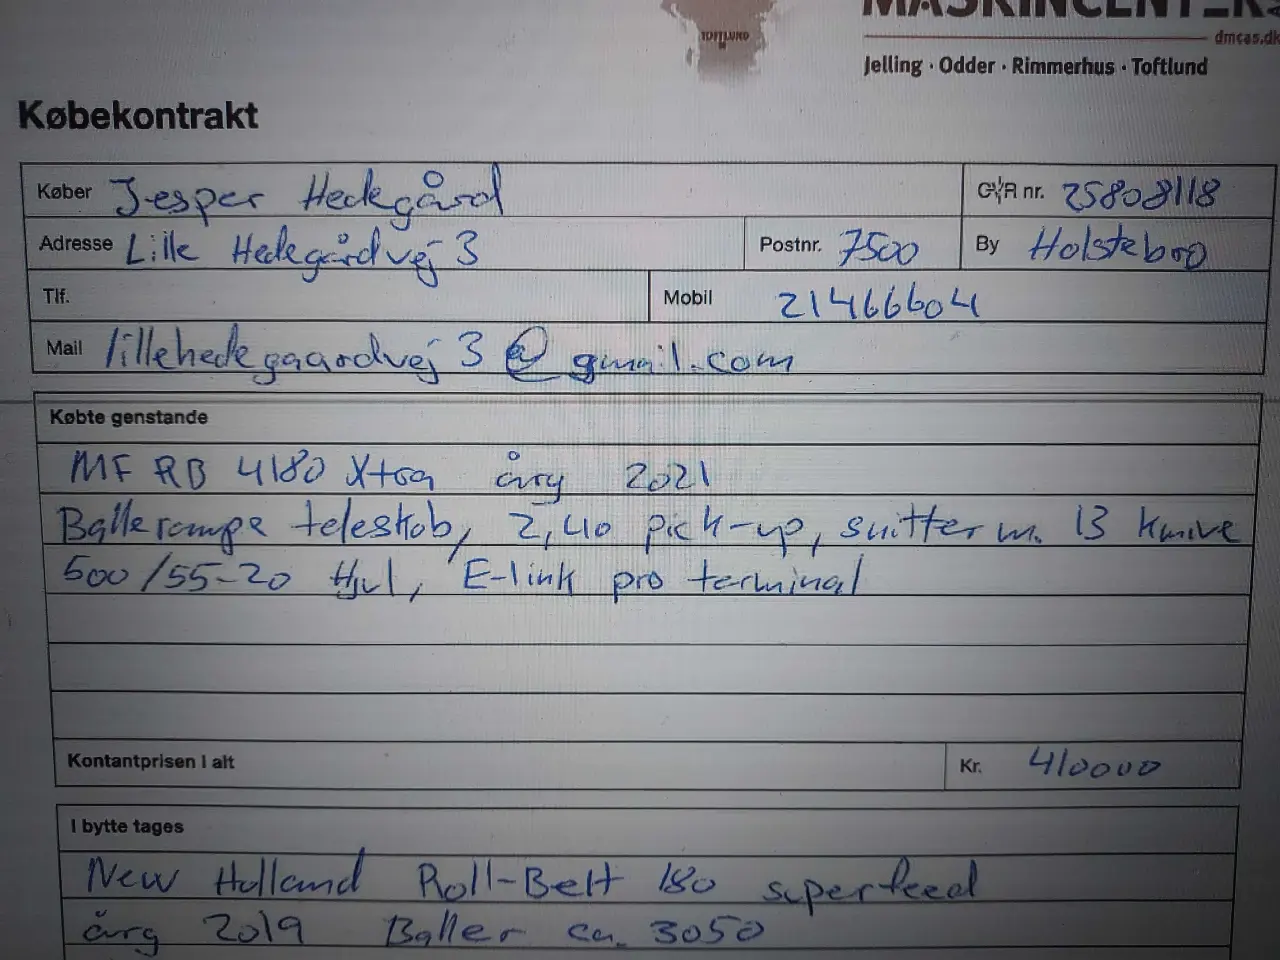 TOFTLUND
MASKINCENTER
dmcas.dk
Jelling · Odder · Rimmerhus · Toftlund
Købekontrakt
Køber Jesper Hedegård CVR nr. 25808118
Adresse Lille Hedegårdvej 3 Postnr. 7500 By Holstebro
Tlf. Mobil 21466604
Mail lillehedegaardvej3@gmail.com
Købte genstande
MF RB 4180 Xtra årg 2021
Ballerampe teleskob, 2,40 pick-up, snitter m. 13 knive
500/55-20 Hjul, E-link pro terminal
Kontantprisen I alt Kr. 410000
I bytte tages
New Holland Roll-Belt 180 superfeed
årg 2019 Baller ca. 3050